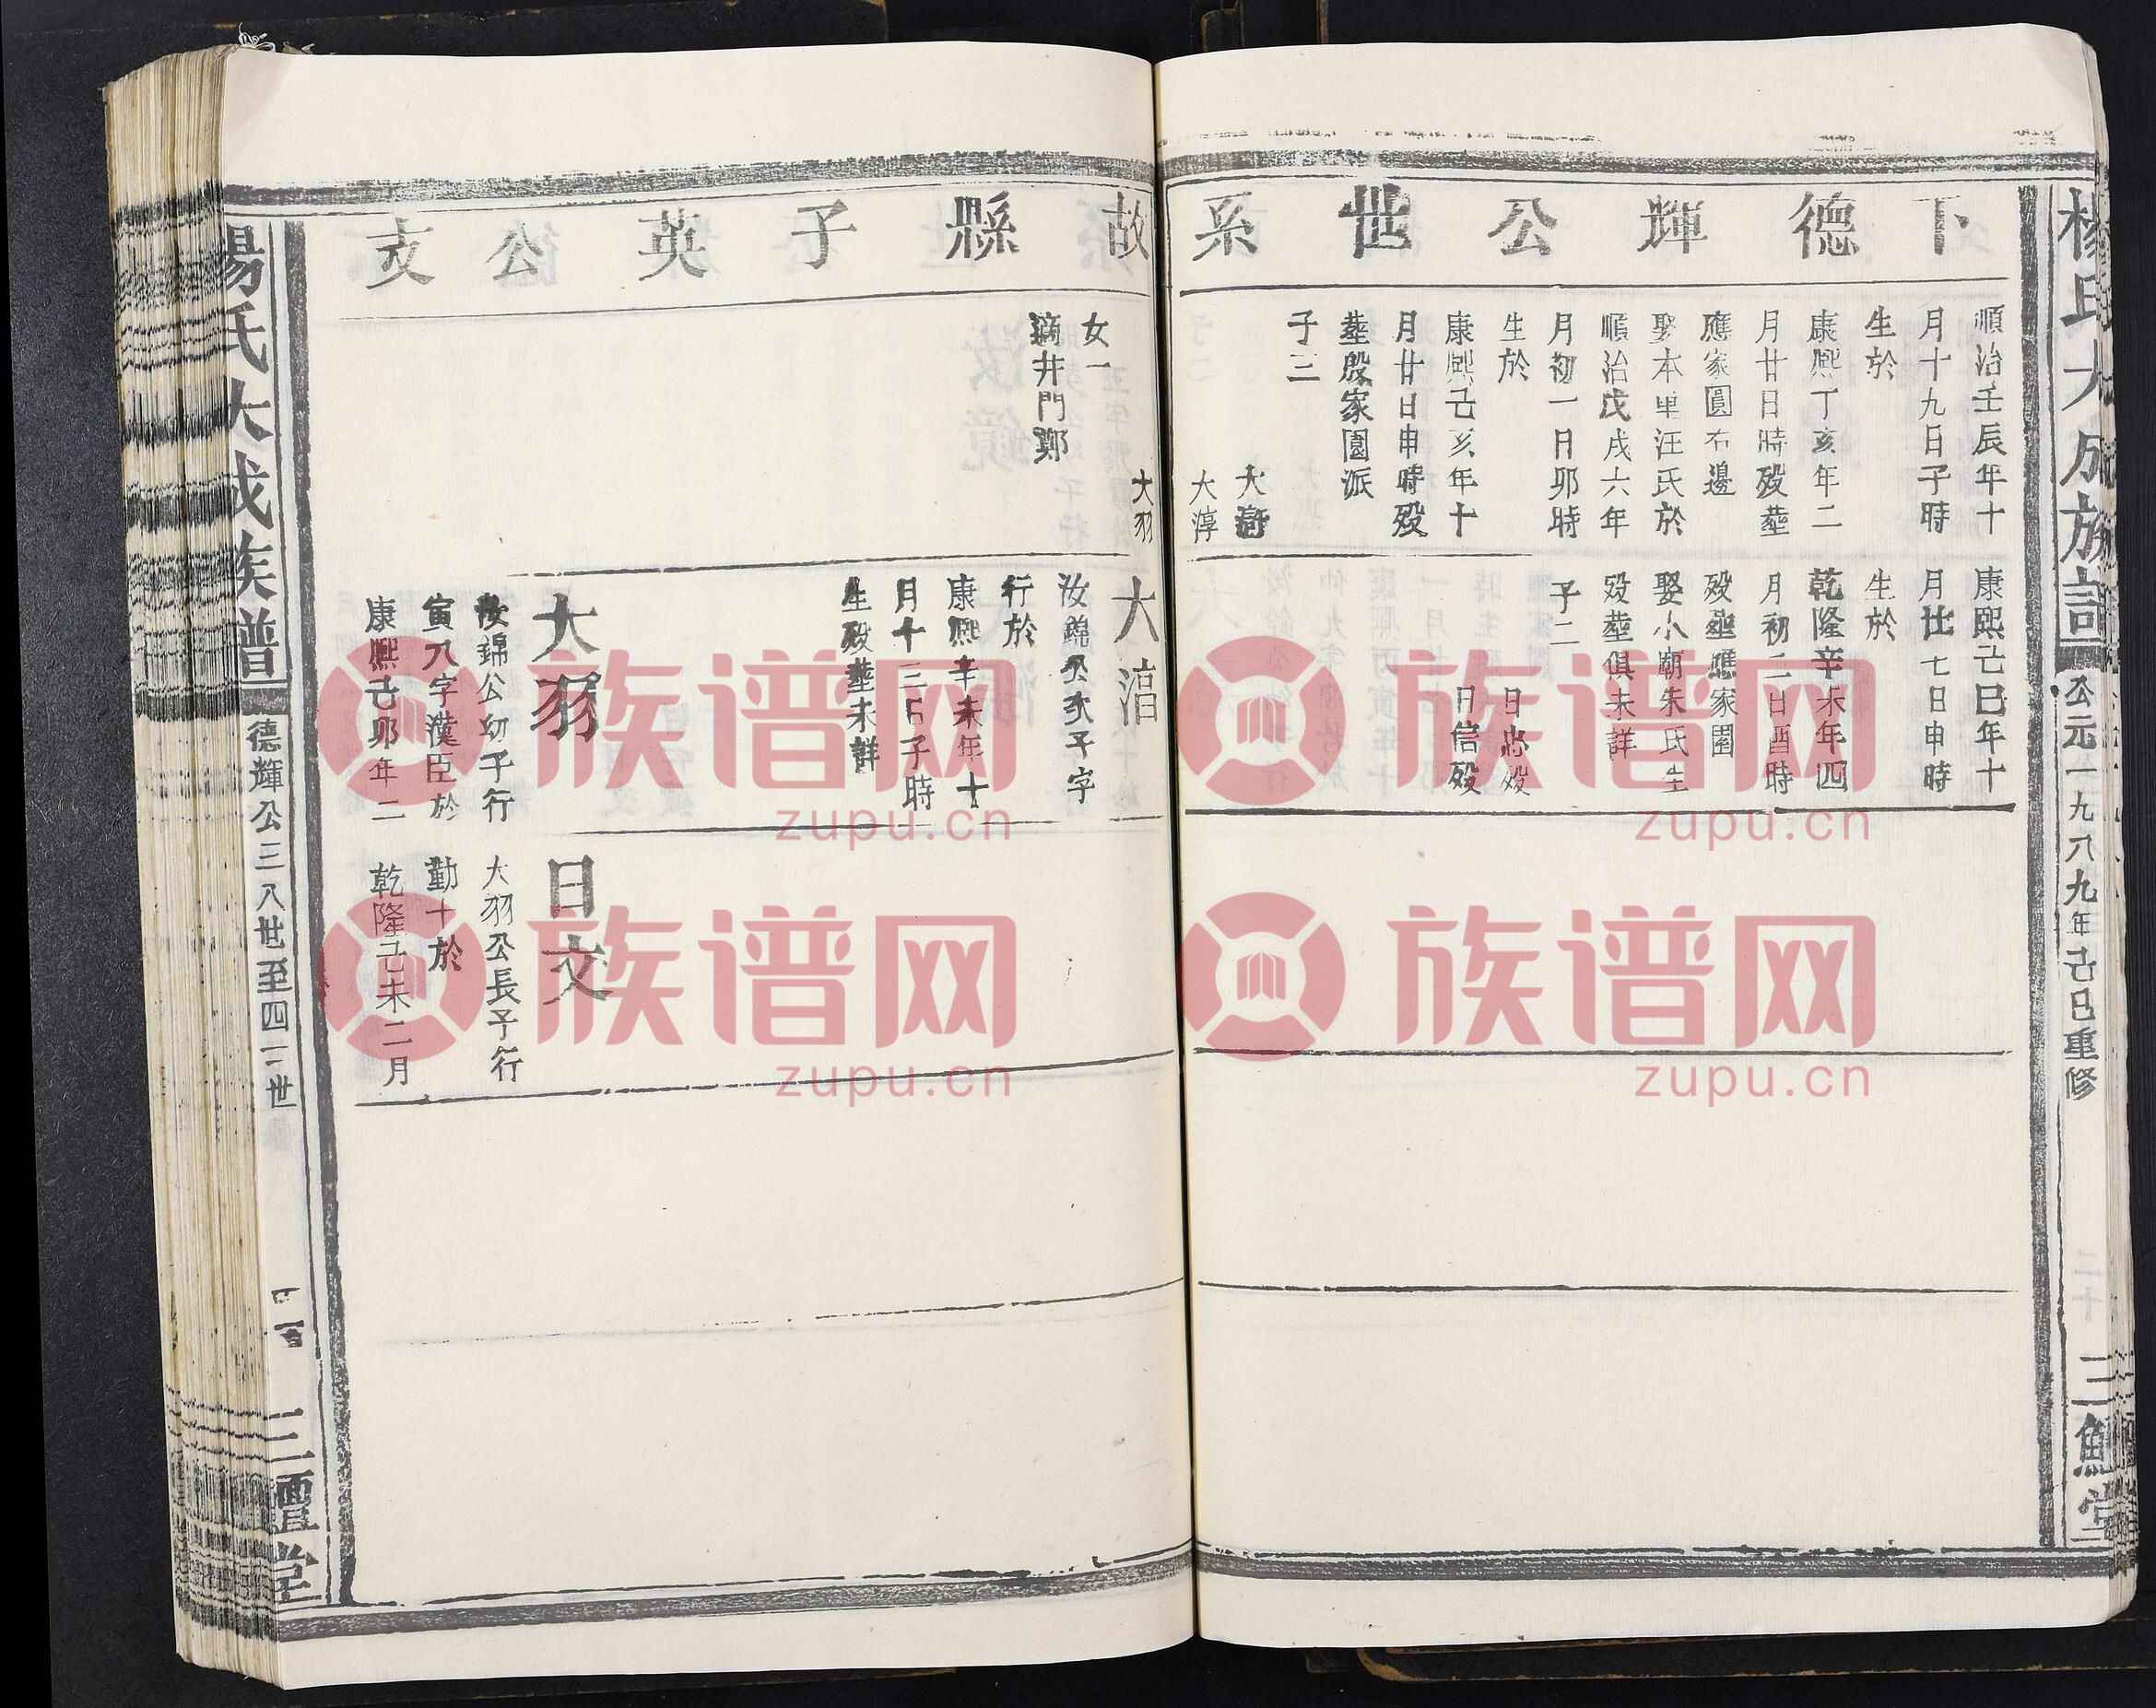 楊氏大成族譜
公元一九八九年己巳重修
三鱣堂
下德輝公世系
順治壬辰年十
月十九日子時
生於
康熙丁亥年二
月廿日時殁塟
應家園右邊
娶本里汪氏於
順治戊戌六年
月初一日卯時
生於
康熙己亥年十
月廿日申時殁
塟殷家園派
子三
大濤
大淳
大羽
康熙己巳年十
月廿七日申時
生於
乾隆辛未年四
月初二日酉時
殁塟應家園
娶小廟朱氏生
殁塟俱未詳
子二
日忠殁
日信殁
故縣子英公支
女一
適井門鄭
大湻
汝錦公次子字
行於
康熙辛未年十
月十三日子時
生殁塟未詳
大羽
汝錦公幼子行
寅八字漢臣於
康熙己卯年二
日文
大羽公長子行
勤十於
乾隆己未二月
楊氏大成族譜
德輝公三八世至四二世
三鱣堂
族谱网
zupu.cn
族谱网
zupu.cn
族谱网
zupu.cn
族谱网
zupu.cn